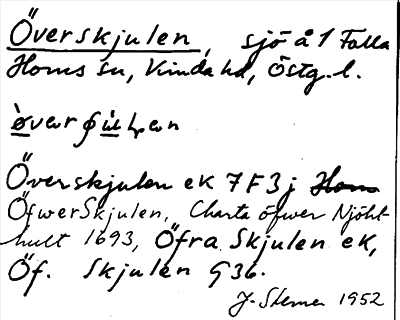 Överskjulen, sjö å 1 Falla
Horns sn, Kinda hd, Östg. l.
Överskjulen ek 7F3j Horn
ÖfwerSkjulen, Charta öfwer Njöhlt-
hult 1693, Öfra Skjulen ek,
Öf. Skjulen G36.
1952